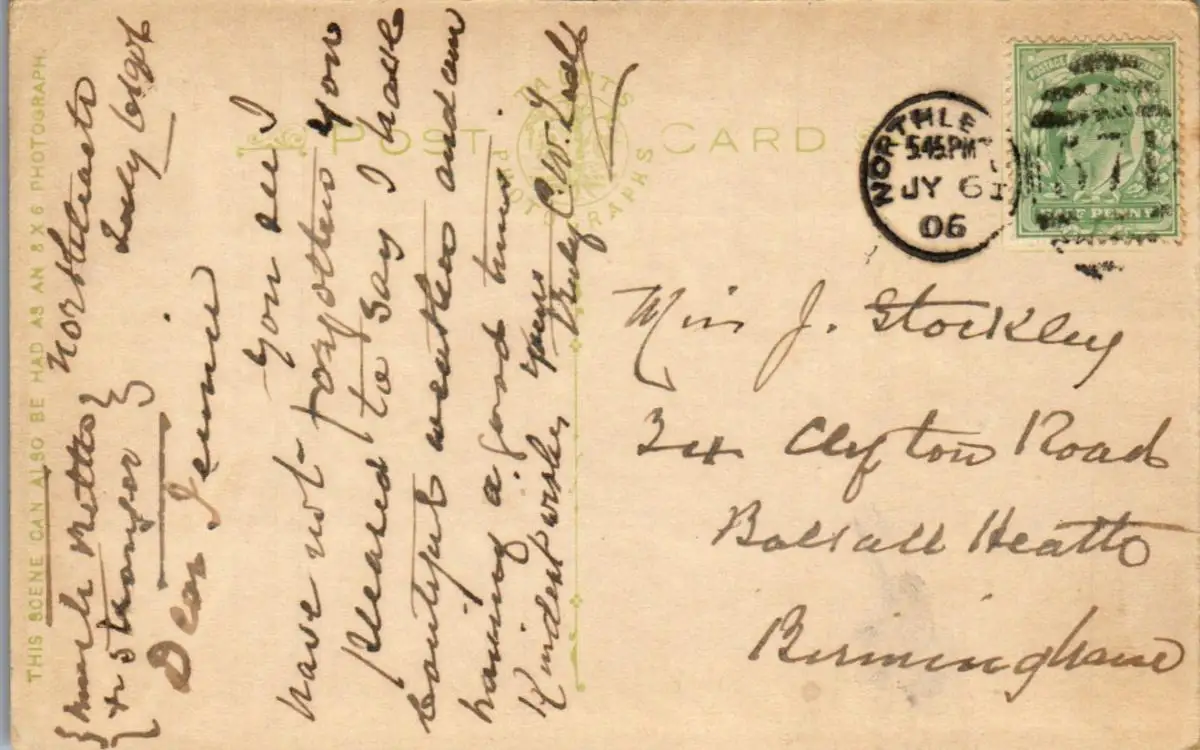 THIS SCENE CAN ALSO BE HAD AS AN 8 X 6 PHOTOGRAPH.
POST CARD
PHOTOGRAPHS
Northleach
July 6 1906
much
stronger
Dear Jennie
You see I
have not forgotten you
pleased to say I have
boutiful weather and am
having a good time.
Kindest wishes yours
Truly C. W.
NORTHLE
5.45 PM
JY 6
06
POSTAGE
HALF PENNY
571
Miss J. Stockley
34 Clyfton Road
Balsall Heath
Birmingham